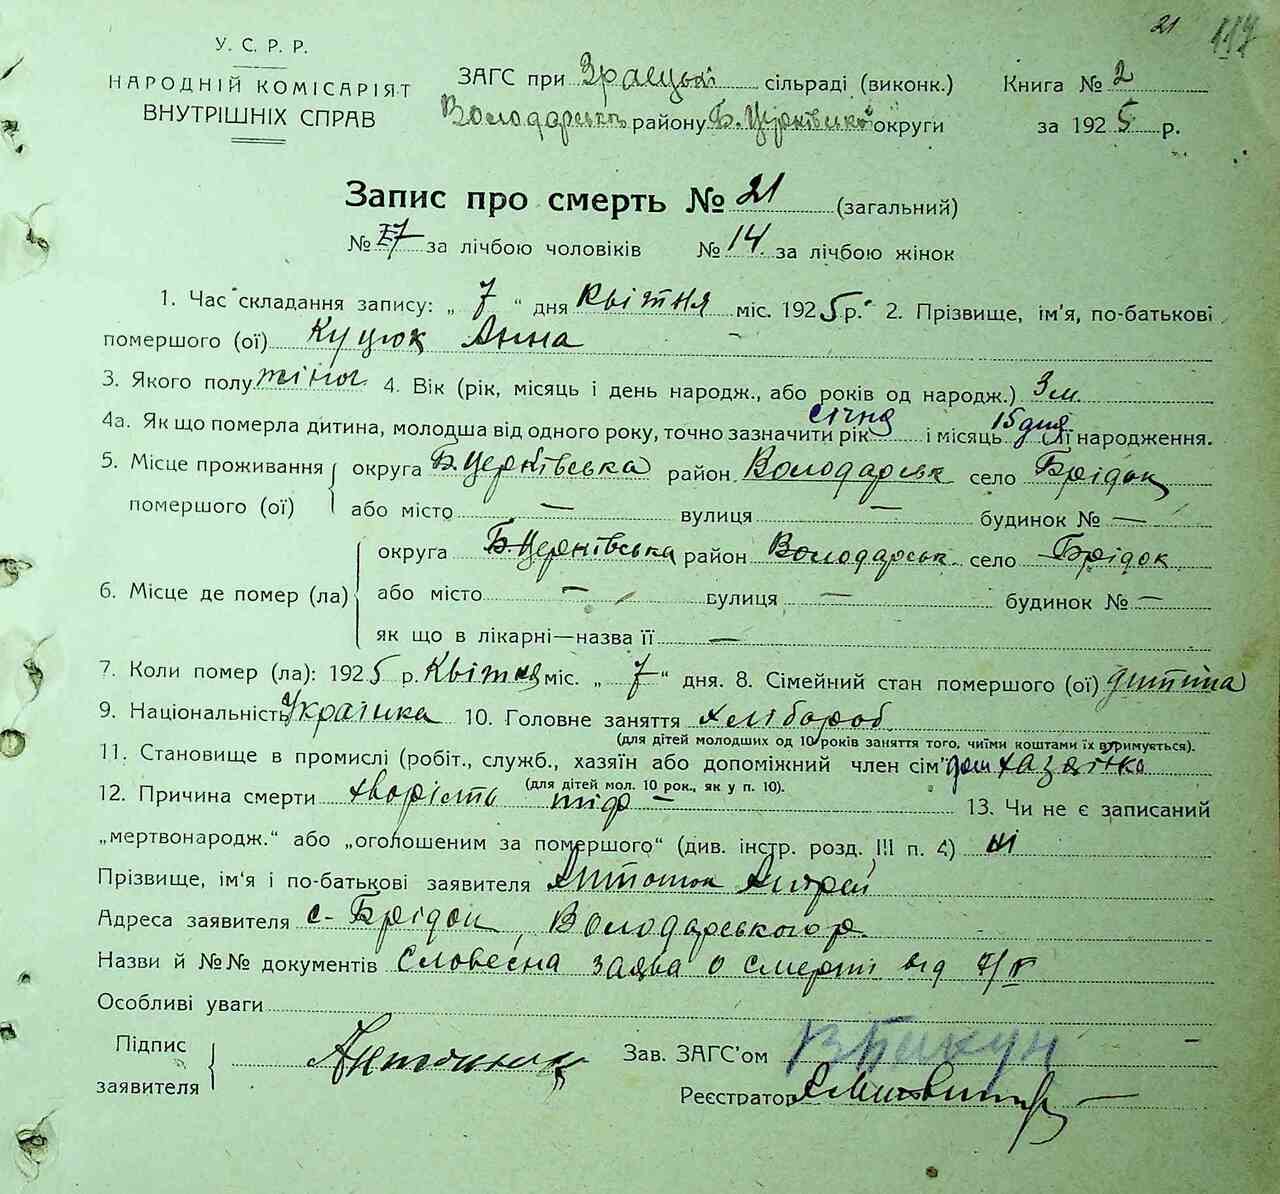 21 117
У. С. Р. Р.
НАРОДНІЙ КОМІСАРІЯТ
ВНУТРІШНІХ СПРАВ
ЗАГС при сільраді (виконк.) Книга № 2
Володарськ району Б. Церківської округи за 1925 р.
Запис про смерть № 21 (загальний)
№ 7 за лічбою чоловіків № 14 за лічбою жінок
1. Час складання запису: „ 7 “ дня Квітня міс. 1925 р. 2. Прізвище, ім'я, по-батькові
помершого (ої) Куцюк Анна
3. Якого полу жіноч 4. Вік (рік, місяць і день народж., або років од народж.) 3 м.
4а. Як що померла дитина, молодша від одного року, точно зазначити рік січня і місяць 15 дня її народження.
5. Місце проживання помершого (ої) округа Б. Церківська район Володарськ село Брідок
або місто — вулиця — будинок № —
6. Місце де помер (ла) округа Б. Церківська район Володарськ село Брідок
або місто — вулиця — будинок № —
як що в лікарні—назва її —
7. Коли помер (ла): 1925 р. Квітня міс. „ 7 “ дня. 8. Сімейний стан помершого (ої) дитина
9. Національність Українка 10. Головне заняття хлібороб
(для дітей молодших од 10 років заняття того, чиїми коштами їх втримується).
11. Становище в промислі (робіт., служб., хазяїн або допоміжний член сім' хазяїна
(для дітей мол. 10 рок., як у п. 10).
12. Причина смерти хворість тиф — 13. Чи не є записаний
„мертвонародж.“ або „оголошеним за помершого“ (див. інстр. розд. III п. 4) ні
Прізвище, ім'я і по-батькові заявителя Антонюк Андрей
Адреса заявителя с- Брідок, Володарського р.
Назви й №№ документів Словесна заява о смерті від 7/IV
Особливі уваги
Підпис заявителя Антонюк Зав. ЗАГС'ом В Бакун
Реєстратор